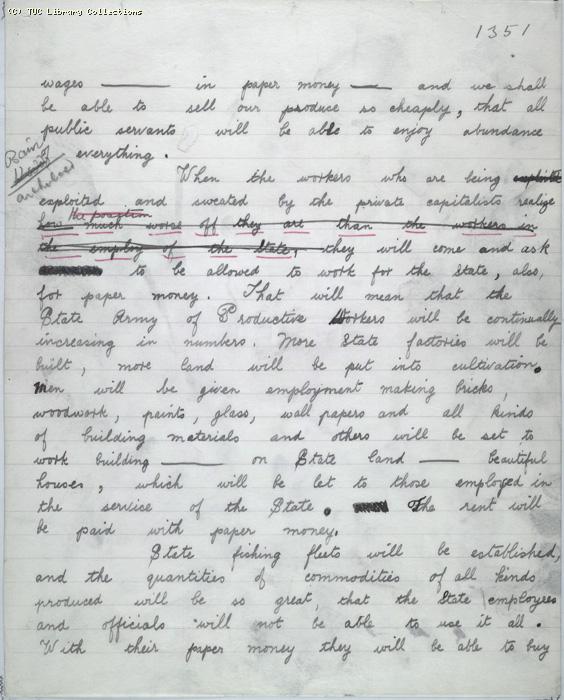 (C) TUC Library Collections
1351
wages — in paper money — and we shall
be able to sell our produce so cheaply, that all
public servants will be able to enjoy abundance
everything.
When the workers who are being
exploited and sweated by the private capitalists realize
the position
how much worse off they are than the workers in
the employ of the State, they will come and ask
to be allowed to work for the State, also,
for paper money. That will mean that the
State Army of Productive Workers will be continually
increasing in numbers. More State factories will be
built, more land will be put into cultivation.
Men will be given employment making bricks,
woodwork, paints, glass, wall papers and all kinds
of building materials and others will be set to
work building — on State land — beautiful
houses, which will be let to those employed in
the service of the State. The rent will
be paid with paper money.
State fishing fleets will be established,
and the quantities of commodities of all kinds
produced will be so great, that the State employees
and officials will not be able to use it all.
With their paper money they will be able to buy